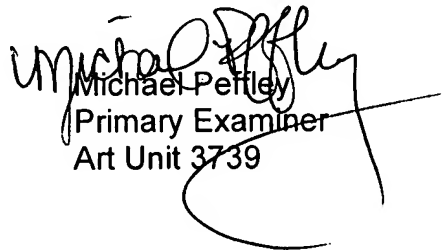 Michael Peffley
Michael Peffley
Primary Examiner
Art Unit 3739